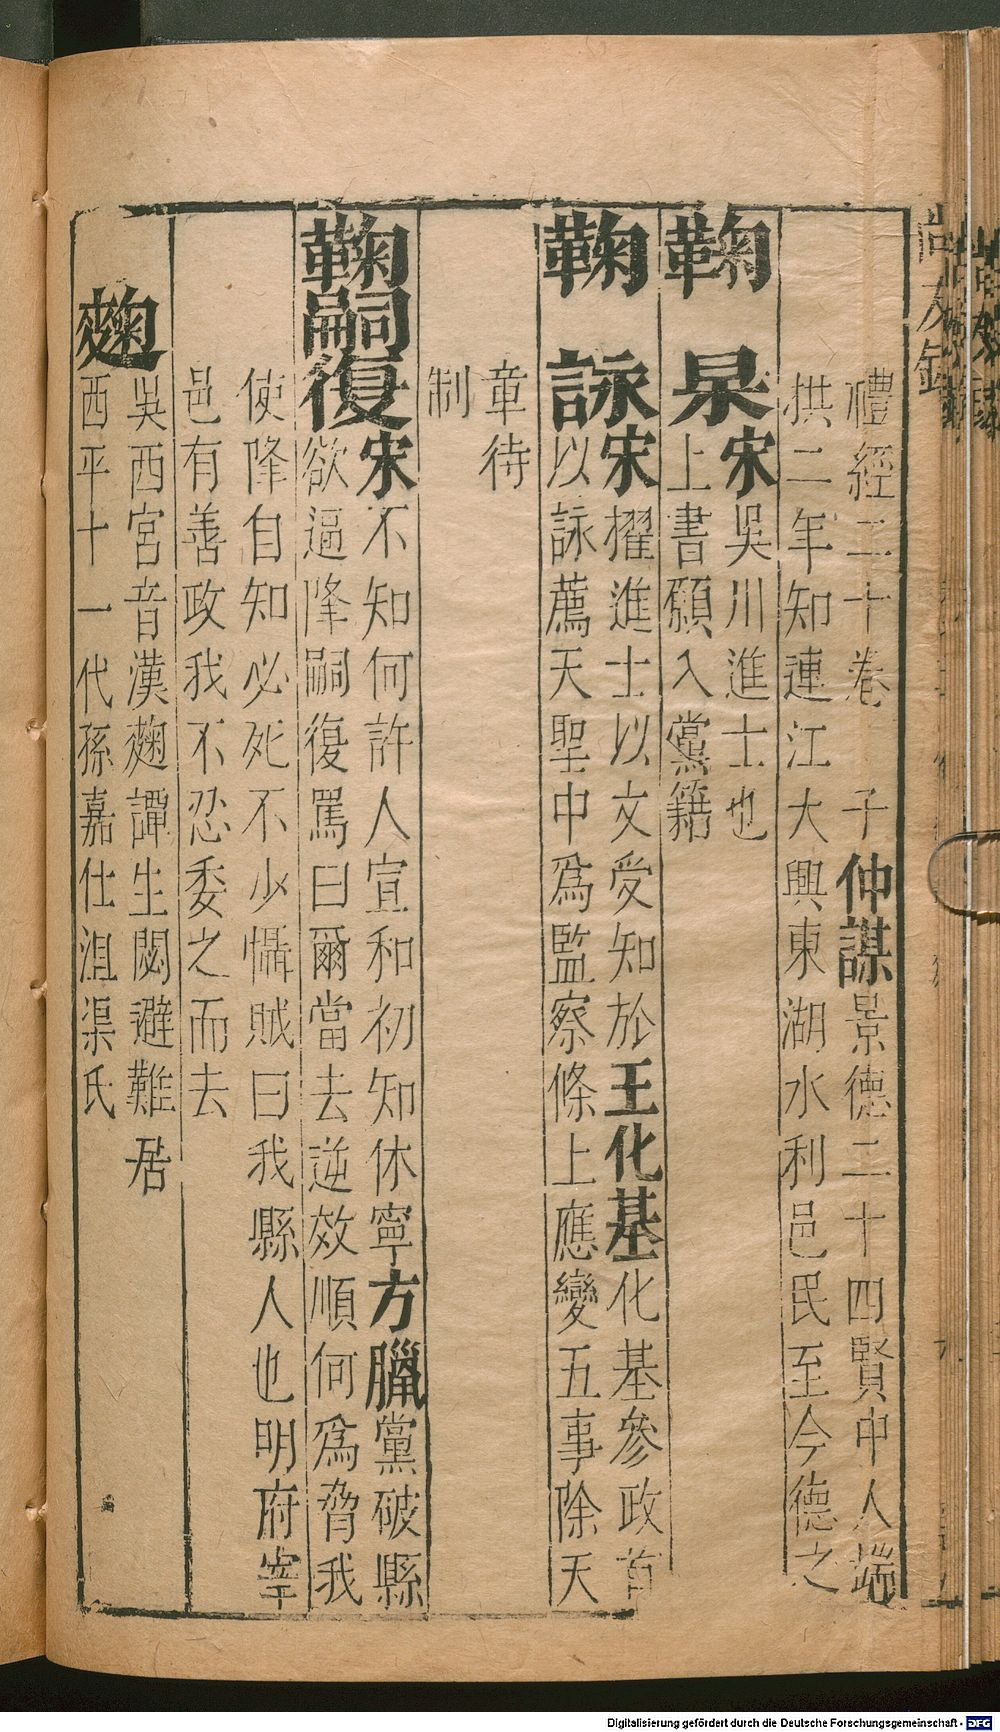 尚友錄
禮經二十卷 子仲謀景德二十四賢中人端
拱二年知連江大興東湖水利邑民至今德之
鞫杲宋吳川進士也
上書願入黨籍
鞫詠宋擢進士以文受知於王化基化基參政首
以詠薦天聖中爲監察條上應變五事除天
章待
制
鞫嗣復宋不知何許人宣和初知休寧方臘黨破縣
欲逼降嗣復罵曰爾當去逆效順何爲脅我
使降自知必死不少懾賊曰我縣人也明府宰
邑有善政我不忍委之而去
麴
吳西宮音漢麴譚生閟避難居
西平十一代孫嘉仕沮渠氏
Digitalisierung gefördert durch die Deutsche Forschungsgemeinschaft - DFG